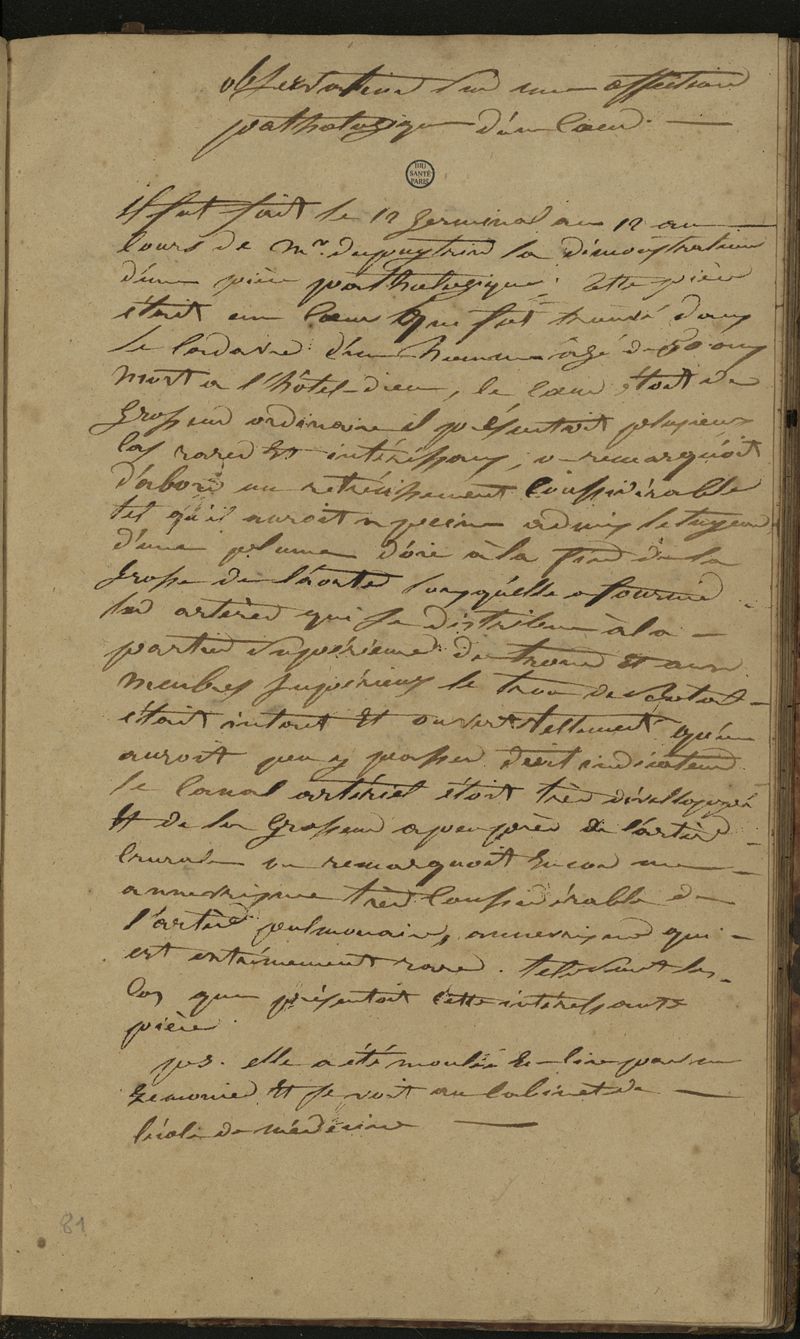 observation sur une affection
pathologique d'un Cœur. —
BIU
SANTÉ
PARIS
Il fut fait le 12 germinal an 12 au
Cours de Mr. dupuytrin la démonstration
d'une pièce pathologique. Cette pièce
étoit un Cœur qui fut trouvé dans
le Cadavre d'un homme âgé de 50 ans
mort a l'hôtel-dieu, le Cœur étoit de
grosseur ordinaire il présentoit plusieurs
Cas rares et intéressans, on remarquoit
d'abord un retrécissement Considérable
tel qu'il auroit a peine admis le tuyau
d'une plume d'oie à la de la
Crosse de l'aorte lorsqu'elle a fournie
les artères qui se distribue à la —
partie supérieure du tronc et aux
membres supérieurs le trou de Botal —
étoit intact et ouvert tellement qu'on
auroit peu y passer doit indicateur
le Canal artériel étoit très dévelloppé
et de la Grosseur a peu près de l'artère
Crurale on remarquoit encore une —
annevrisme très Considérable de
l'artère pulmonaire, annevrisme qui —
est extrêmement rare. tels sont les
Cas que présentoit cette intéressante
pièce.
ps. elle a été moulée en Cire par m
et se voit au Cabinet de —
l'école de médecine —
81